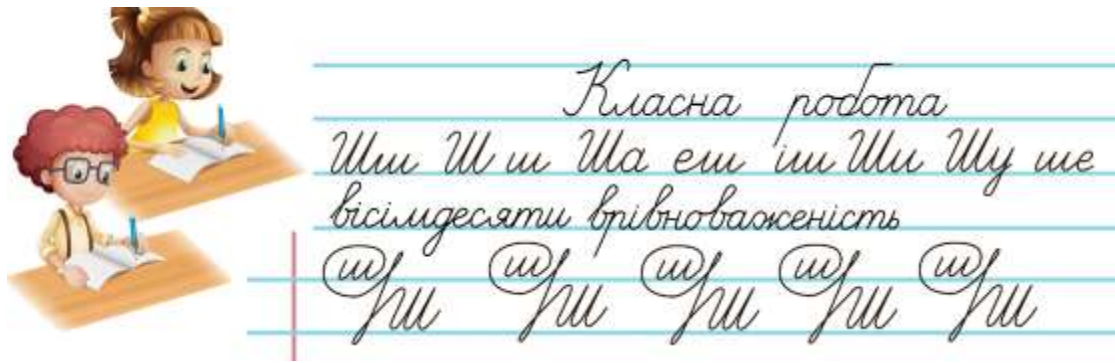 Класна робота
Шш Ш ш Ша еш іш Ши Шу ше
вісімдесяти врівноваженість